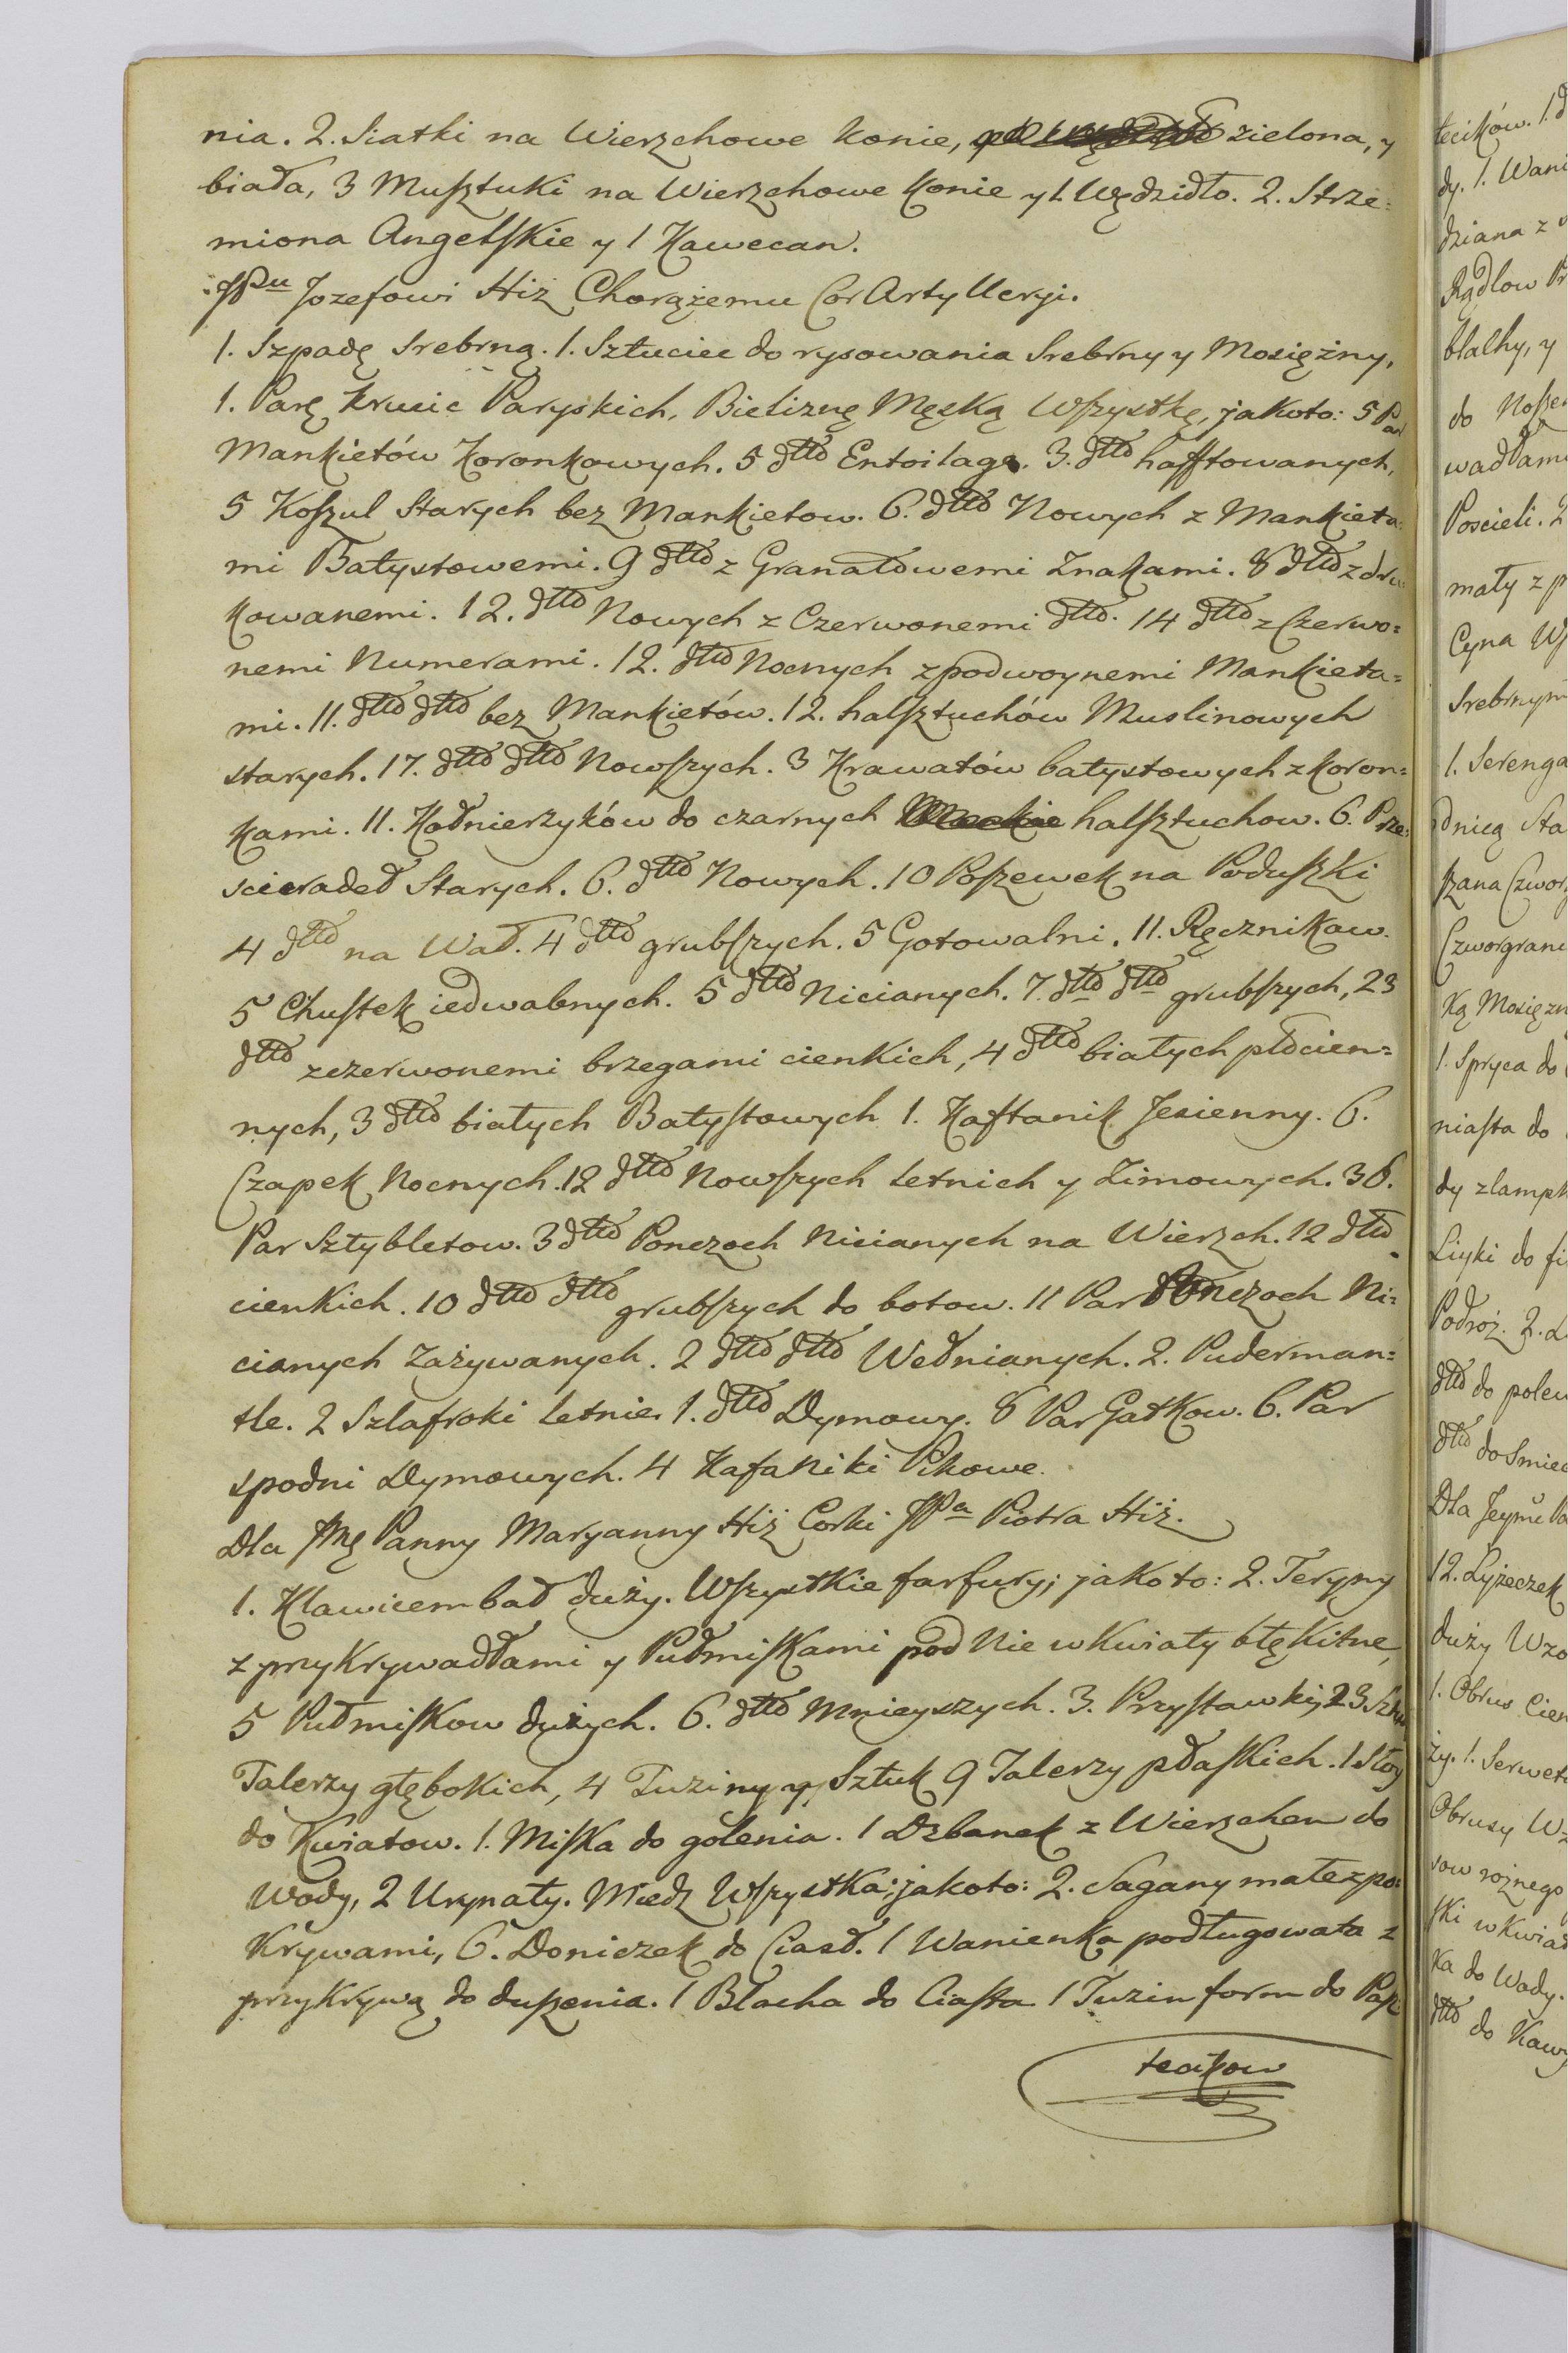 nia. 2. Siatki na Wierzchowe konie, zielona, y
biała, 3 Musztuki na Wierzchowe Konie y 1. Wędzidło. 2. Strze=
miona Angelskie y 1 Kawecan.
JPu Jozefowi Hiż Chorążemu Cor Artylleryi.
1. Szpadę Srebrną. 1. Sztuciec do rysowania Srebrny y Mosiężny,
1. Parę Krucic Paryskich, Bieliznę Męską Wszystkę, jakoto: 5 Par
Mankietów Koronkowych. 5 dtto Entoilage. 3. dtto hafftowanych,
5 Koszul Starych bez Mankietow. 6. dtto Nowych z Mankieta=
mi Batystowemi. 9 dtto z Granatowemi Znakami. 8 dtto z dru
kowanemi. 12. dtto Nowych z Czerwonemi dtto. 14 dtto z Czerwo=
nemi Numerami. 12. dtto Nocnych z podwoynemi Mankieta=
mi. 11. dtto dtto bez Mankietów. 12. halsztuchów Muslinowych
starych. 17. dtto dtto Nowszych. 3 Krawatów batystowych z koron=
kami. 11. Kołnierzyków do czarnych halsztuchow. 6. Prze=
scieradeł Starych. 6. dtto Nowych. 10 Poszewek na Poduszki
4 dtto na Wał. 4 dtto grubszych. 5 Gotowalni. 11. Ręcznikow.
5 Chustek iedwabnych. 5 dtto Nicianych. 7. dtto dtto grubszych, 23
dtto zczerwonemi brzegami cienkich, 4 dtto białych płócien=
nych, 3 dtto białych Batystowych 1. Kaftanik Jesienny. 6.
Czapek Nocnych. 12 dtto Nowszych letnich y Zimowych. 36.
Par Sztybletow. 3 dtto Ponczoch Nicianych na Wierzch. 12 dtto
cienkich. 10 dtto dtto grubszych do botow. 11 Par Ponczoch Ni=
cianych Zażywanych. 2 dtto dtto Wełnianych. 2. Puderman=
tle. 2 Szlafroki letnie. 1. dtto Dymowy. 8 Par Gatkow. 6. Par
spodni Dymowych. 4 Kafaniki Pikowe.
Dla JMę Panny Maryanny Hiż Corki JPa Piotra Hiż.
1. Klawicembał duży. Wszystkie farfury; jakoto: 2. Teryny
z przykrywadłami y Pułmiskami pod Nie w Kwiaty błękitne,
5 Pułmiskow dużych. 6. dtto Mnieyszych. 3. Przystawki, 23 Sztuk
Talerzy głębokich, 4 Tuziny y Sztuk 9 Talerzy płaskich. 1 Stoy
do Kwiatow. 1. Miska do golenia. 1 Dzbanek z Wierzchem do
Wody, 2 Urynały. Miedz Wszystka; jakoto: 2. Sagany małe z po=
krywami, 6. Doniczek do Ciast. 1 Wanienka podługowata z
przykrywą do duszenia. 1 Blacha do Ciasta 1 Tuzin form do Pasz
tecikow
tecików. 1. d
dy. 1. Wani
dziana z
Rądlow
blalhy, y
do Noszen
wadłami
Poscieli. 2
mały z p
Cyna W
Srebrnym
1. Serenga
dnieg Sta
Czworgran
ką Mosiężn
1. Spryca do
niasta do
dy z lampk
Liyki do fi
Podroż. 2. L
dtto do polew
dtto do Smiec
Dla Jeymć Pa
12. Łyżeczek
duży Wzo
1. Obrus Cien
ży. 1. Serweta
Obrusy Wz
sow rożnego
ski w Kwiat
ka do Wody.
dtto do Kawy